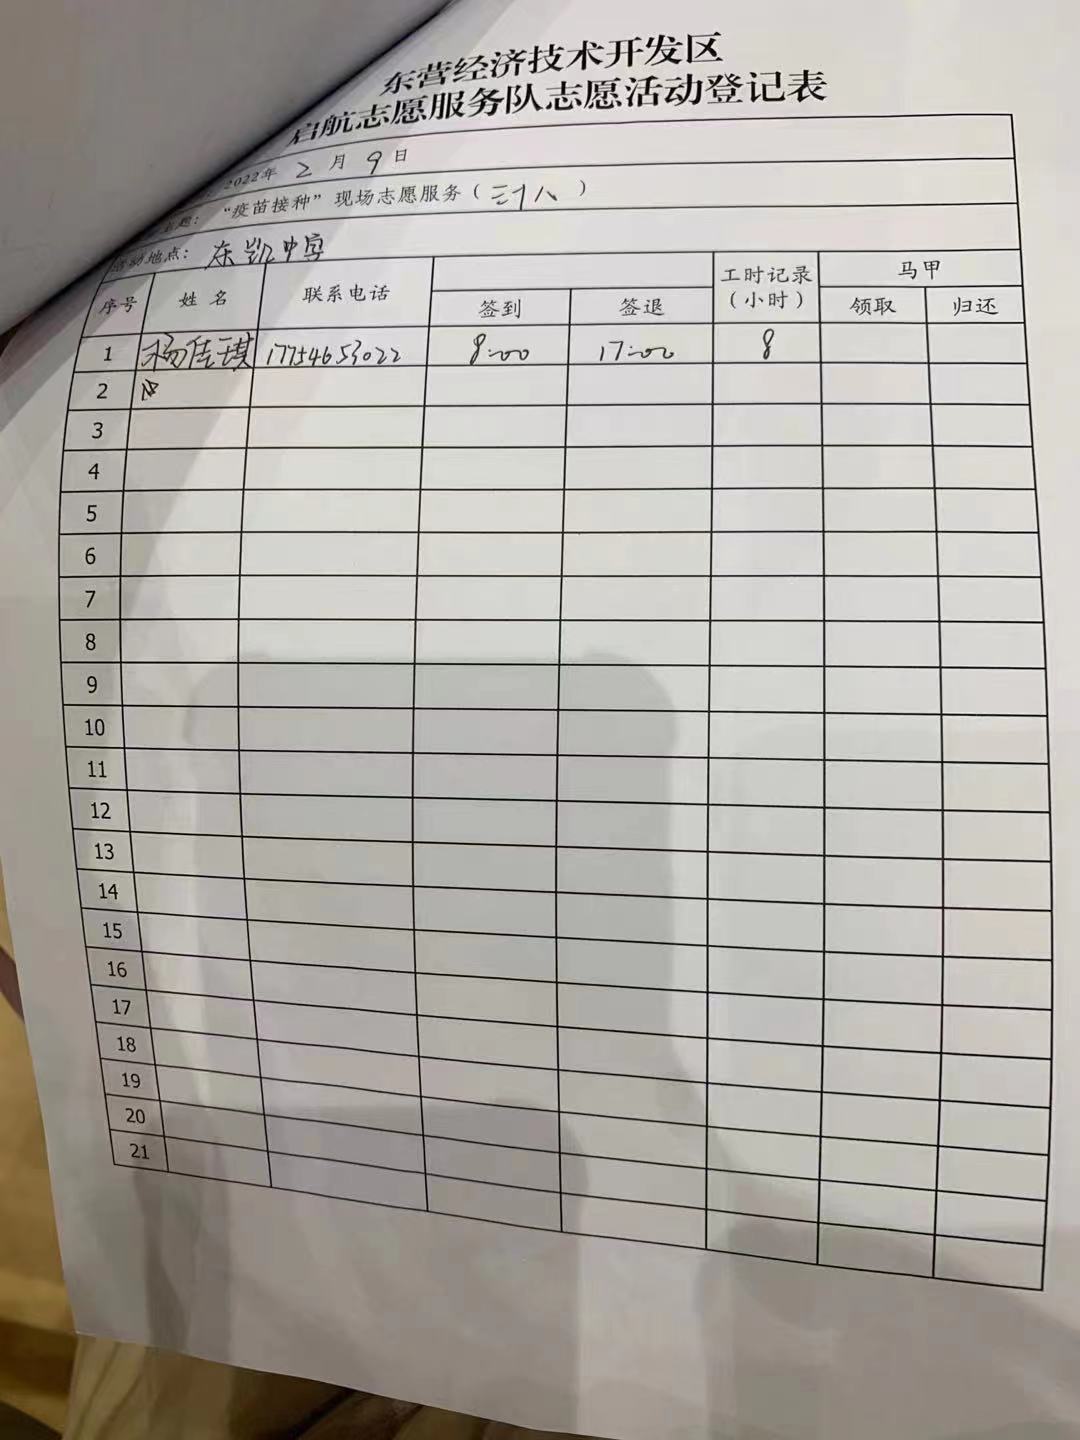 东营经济技术开发区
启航志愿服务队志愿活动登记表
2022年 2 月 9 日
主题：“疫苗接种”现场志愿服务（ ）
活动地点：东凯中学
序号 姓 名 联系电话 签到 签退 工时记录（小时） 马甲 领取 归还
1 杨佳琪 17754653022 8:00 17:00 8
2
3
4
5
6
7
8
9
10
11
12
13
14
15
16
17
18
19
20
21